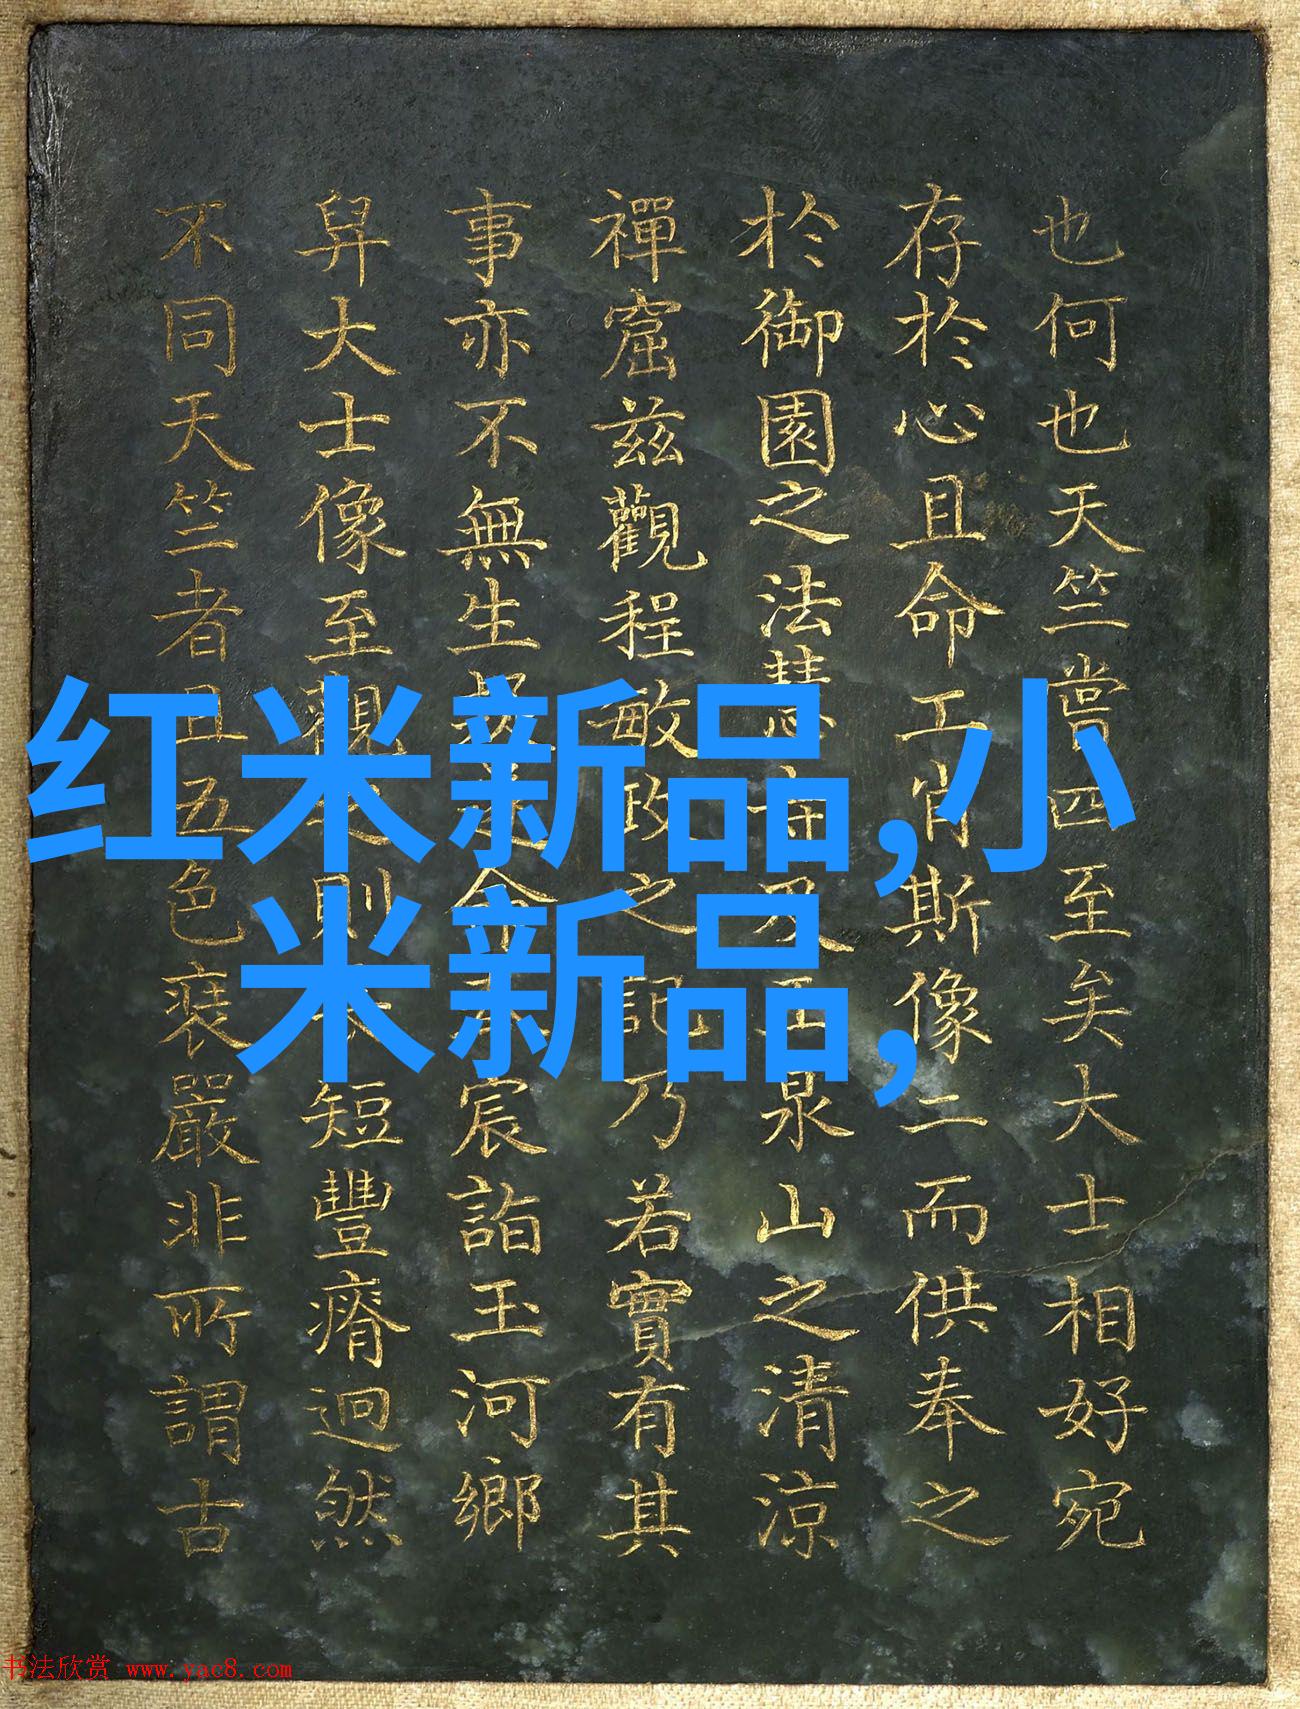 也何也天竺嘗四至矣大士相好宛
存於心且命工肖斯像二而供奉之
於御園之法慧寺及玉泉山之清涼
禪窟茲觀程敏政之記乃若實有其
事亦不無生命宸詣玉河鄉
舁大士像至觀之則短豐瘠迥然
不同天竺者且五色裝嚴非所謂古
红米新品,小
米新品,
书法欣赏 www.yac8.com